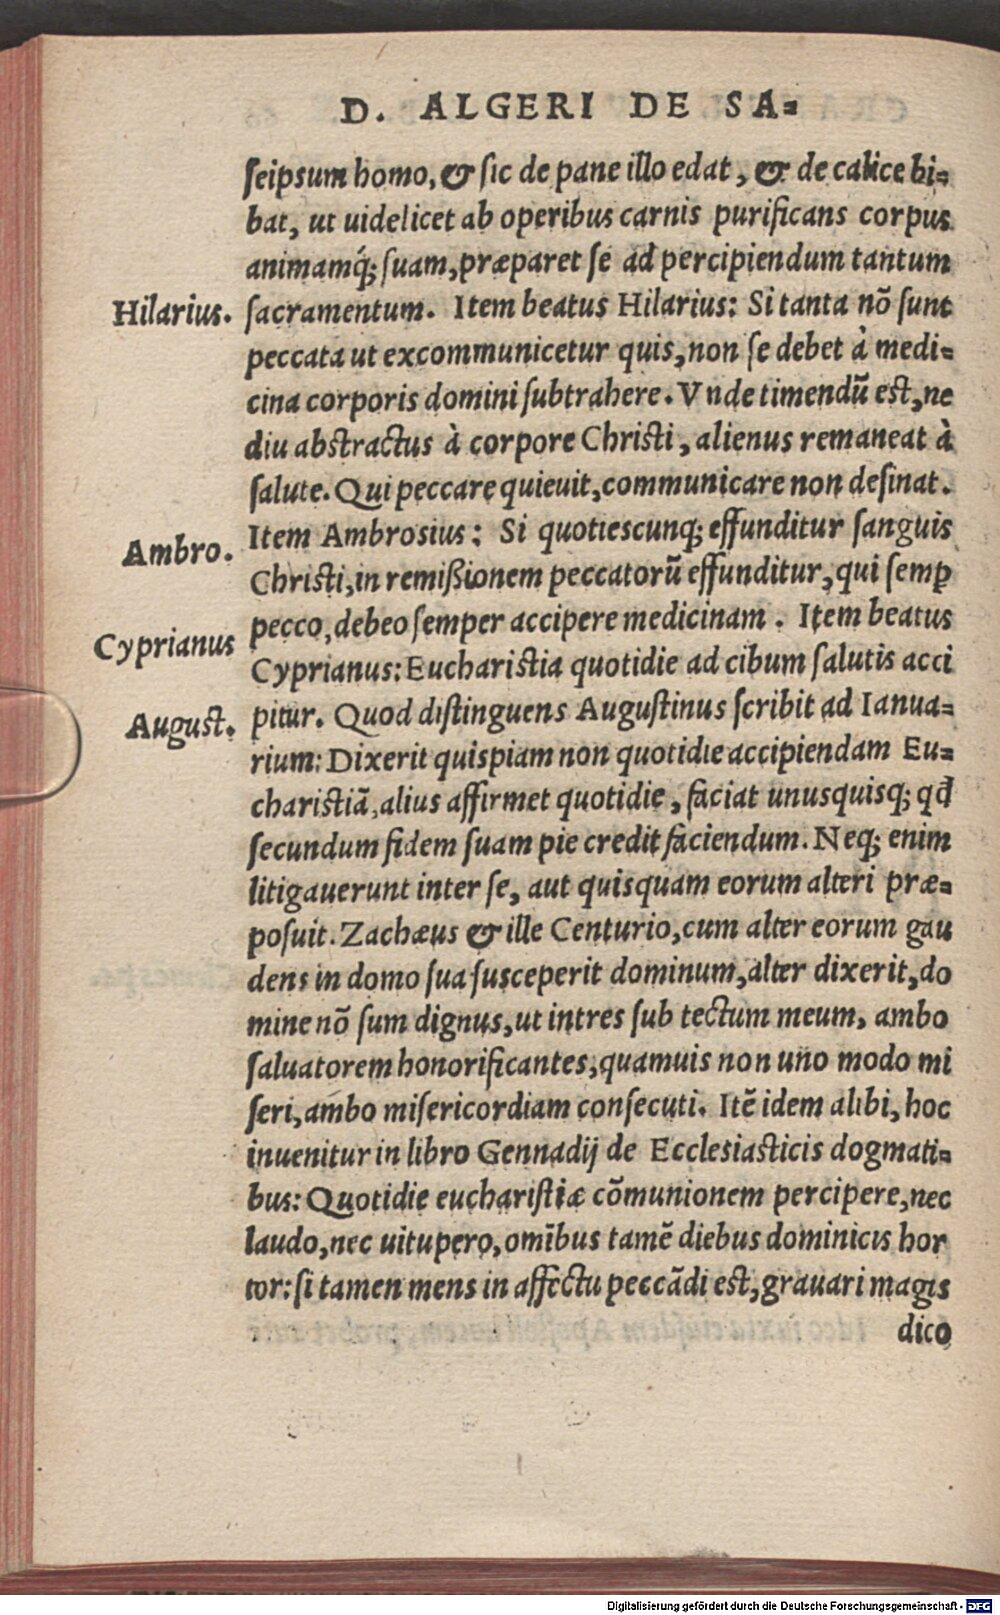 D. ALGERI DE SA=
seipsum homo, & sic de pane illo edat, & de calice bi=
bat, ut uidelicet ab operibus carnis purificans corpus
animamq́; suam, præparet se ad percipiendum tantum
Hilarius. sacramentum. Item beatus Hilarius: Si tanta nō sunt
peccata ut excommunicetur quis, non se debet à medi=
cina corporis domini subtrahere. Vnde timendū est, ne
diu abstractus à corpore Christi, alienus remaneat à
salute. Qui peccare quieuit, communicare non desinat.
Ambro. Item Ambrosius: Si quotiescunq; effunditur sanguis
Christi, in remißionem peccatorū effunditur, qui semꝑ
pecco, debeo semper accipere medicinam. Item beatus
Cyprianus Cyprianus: Eucharistia quotidie ad cibum salutis acci
August. pitur. Quod distinguens Augustinus scribit ad Ianua=
rium: Dixerit quispiam non quotidie accipiendam Eu=
charistiā, alius affirmet quotidie, faciat unusquisq; qđ
secundum fidem suam pie credit faciendum. Neq; enim
litigauerunt inter se, aut quisquam eorum alteri præ=
posuit. Zachæus & ille Centurio, cum alter eorum gau
dens in domo sua susceperit dominum, alter dixerit, do
mine nō sum dignus, ut intres sub tectum meum, ambo
saluatorem honorificantes, quamuis non uno modo mi
seri, ambo misericordiam consecuti. Itē idem alibi, hoc
inuenitur in libro Gennadij de Ecclesiasticis dogmati=
bus: Quotidie eucharistiæ cōmunionem percipere, nec
laudo, nec uitupero, omībus tamē diebus dominicis hor
tor: si tamen mens in affectu peccādi est, grauari magis
dico
Digitalisierung gefördert durch die Deutsche Forschungsgemeinschaft - DFG